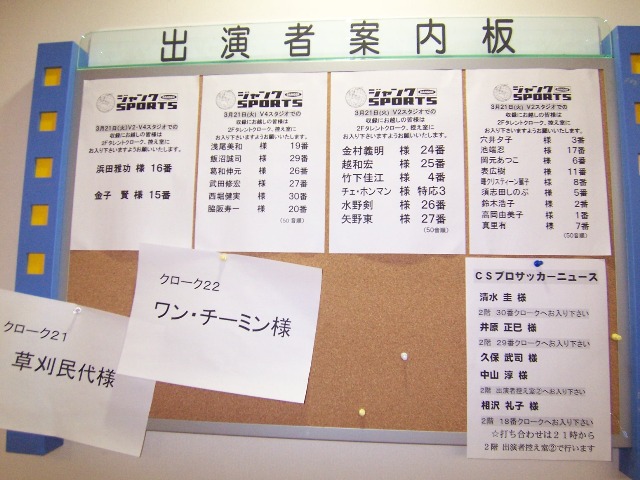 出演者案内板
ジャンク
SPORTS
3月21日(火)V2・V4スタジオでの
収録にお越しの皆様は
2Fタレントクローク、控え室に
お入り下さいますようお願いいたします。
浜田雅功 様 16番
金子 賢 様 15番
ジャンク
SPORTS
3月21日(火) V4スタジオでの
収録にお越しの皆様は
2Fタレントクローク、控え室に
お入り下さいますようお願いいたします。
浅尾美和 様 19番
飯沼誠司 様 29番
葛和伸元 様 26番
武田修宏 様 27番
西堀健実 様 30番
脇阪寿一 様 20番
(50音順)
ジャンク
SPORTS
3月21日(火) V2スタジオでの
収録にお越しの皆様は
2Fタレントクローク、控え室に
お入り下さいますようお願いいたします。
金村義明 様 24番
越和宏 様 25番
竹下佳江 様 4番
チェ・ホンマン 様 特応3
水野剣 様 26番
矢野東 様 27番
(50音順)
ジャンク
SPORTS
3月21日(火) V2スタジオでの
収録にお越しの皆様は
2Fタレントクローク、控え室に
お入り下さいますようお願いいたします。
穴井夕子 様 3番
池端忍 様 17番
岡元あつこ 様 6番
表広樹 様 11番
クリスティーン 様 8番
須志田しのぶ 様 5番
鈴木浩子 様 2番
高岡由美子 様 1番
真里有 様 7番
(50音順)
クローク21
草刈民代様
クローク22
ワン・チーミン様
CSプロサッカーニュース
清水 圭 様
2階 30番クロークへお入り下さい
井原 正巳 様
2階 29番クロークへお入り下さい
久保 武司 様
中山 淳 様
2階 出演者控え室②へお入り下さい
相沢 礼子 様
2階 18番クロークへお入り下さい
☆打ち合わせは21時から
2階 出演者控え室②で行います